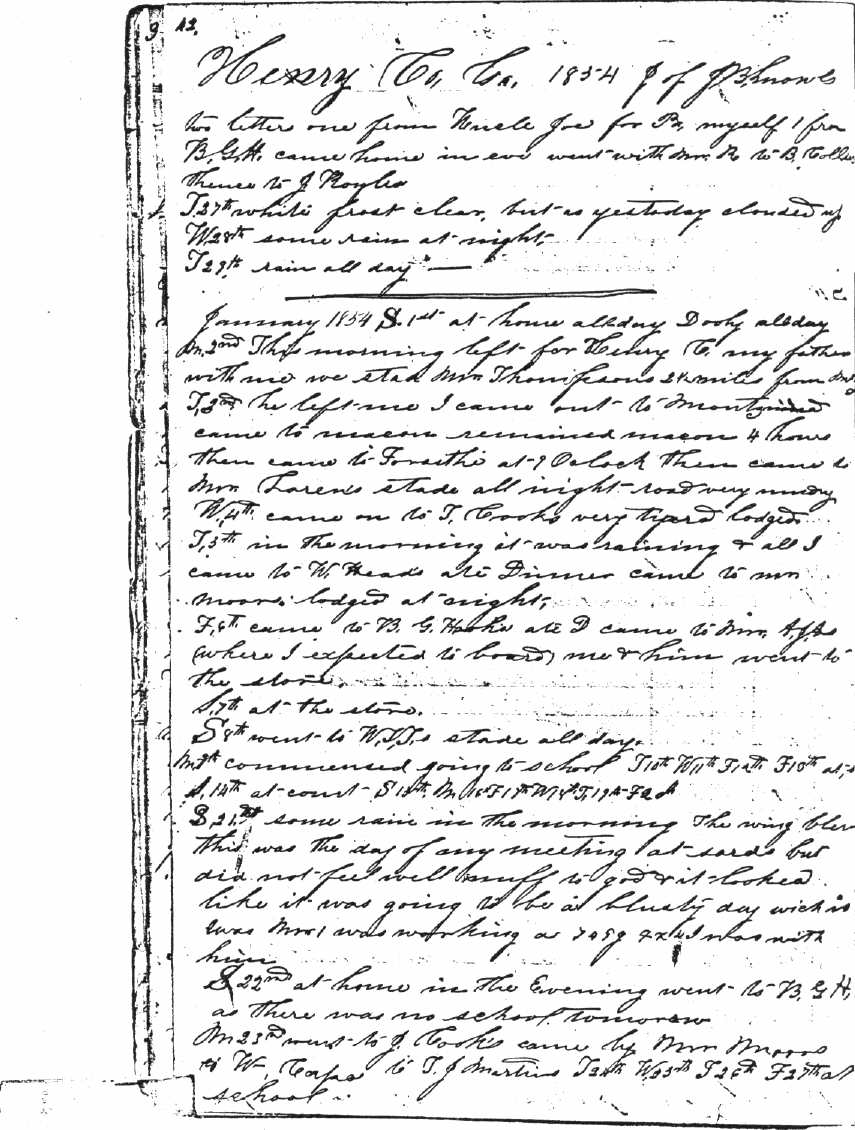 9 42.
Henry Co, Ga, 1854 J of J B Knowls
two letters one from Huncle Joe for Pa, myself 1 from
B. G. H. came home in eve went with Mr. R to B.
thence to J
T 27th white frost clear, but as yestoday clouded up
W 28th some rain at night,
T 29th rain all day —
January 1854 S. 1st at home all day Dooly all day
M. 2nd This morning left for Henry C. my father
with me we stad Mr. Thompsons 2½ miles from
T, 3rd he left me I came out to
came to macon remained macon 4 hours
then came to Forsithe at 9 Oclock then came to
Mr. Lorens stade all night road very muddy
W, 4th came on to T, Cooks very tyard lodged
T, 5th in the morning it was raining & all I
came to W. Heads ate Dinner came to mr
moors lodged at night,
F, 6th came to B. G. Hooks ate D came to Mr.
(where I expected to board) me & him went to
the store.
S, 7th at the store.
S 8th went to W. stade all day.
M 9th commensed going to school T 10th W 11th F 12th F 13th at
S. 14th at court S 15th. M 16 F 17th W 18th T, 19th F 20
S 21st some rain in the morning The wing blew
this was the day of any meeting at sards but
did not feel well nuff to go & it looked
like it was going to be a blusty day wich is
was Mr was working a I was with
him
S 22nd at home in the Evening went to B. G H,
as there was no school tomorow
M 23rd went to J. Cooks came by Mr Moors
to W, to T. J Martins T 24th W 25th T 26th F 27th at
school